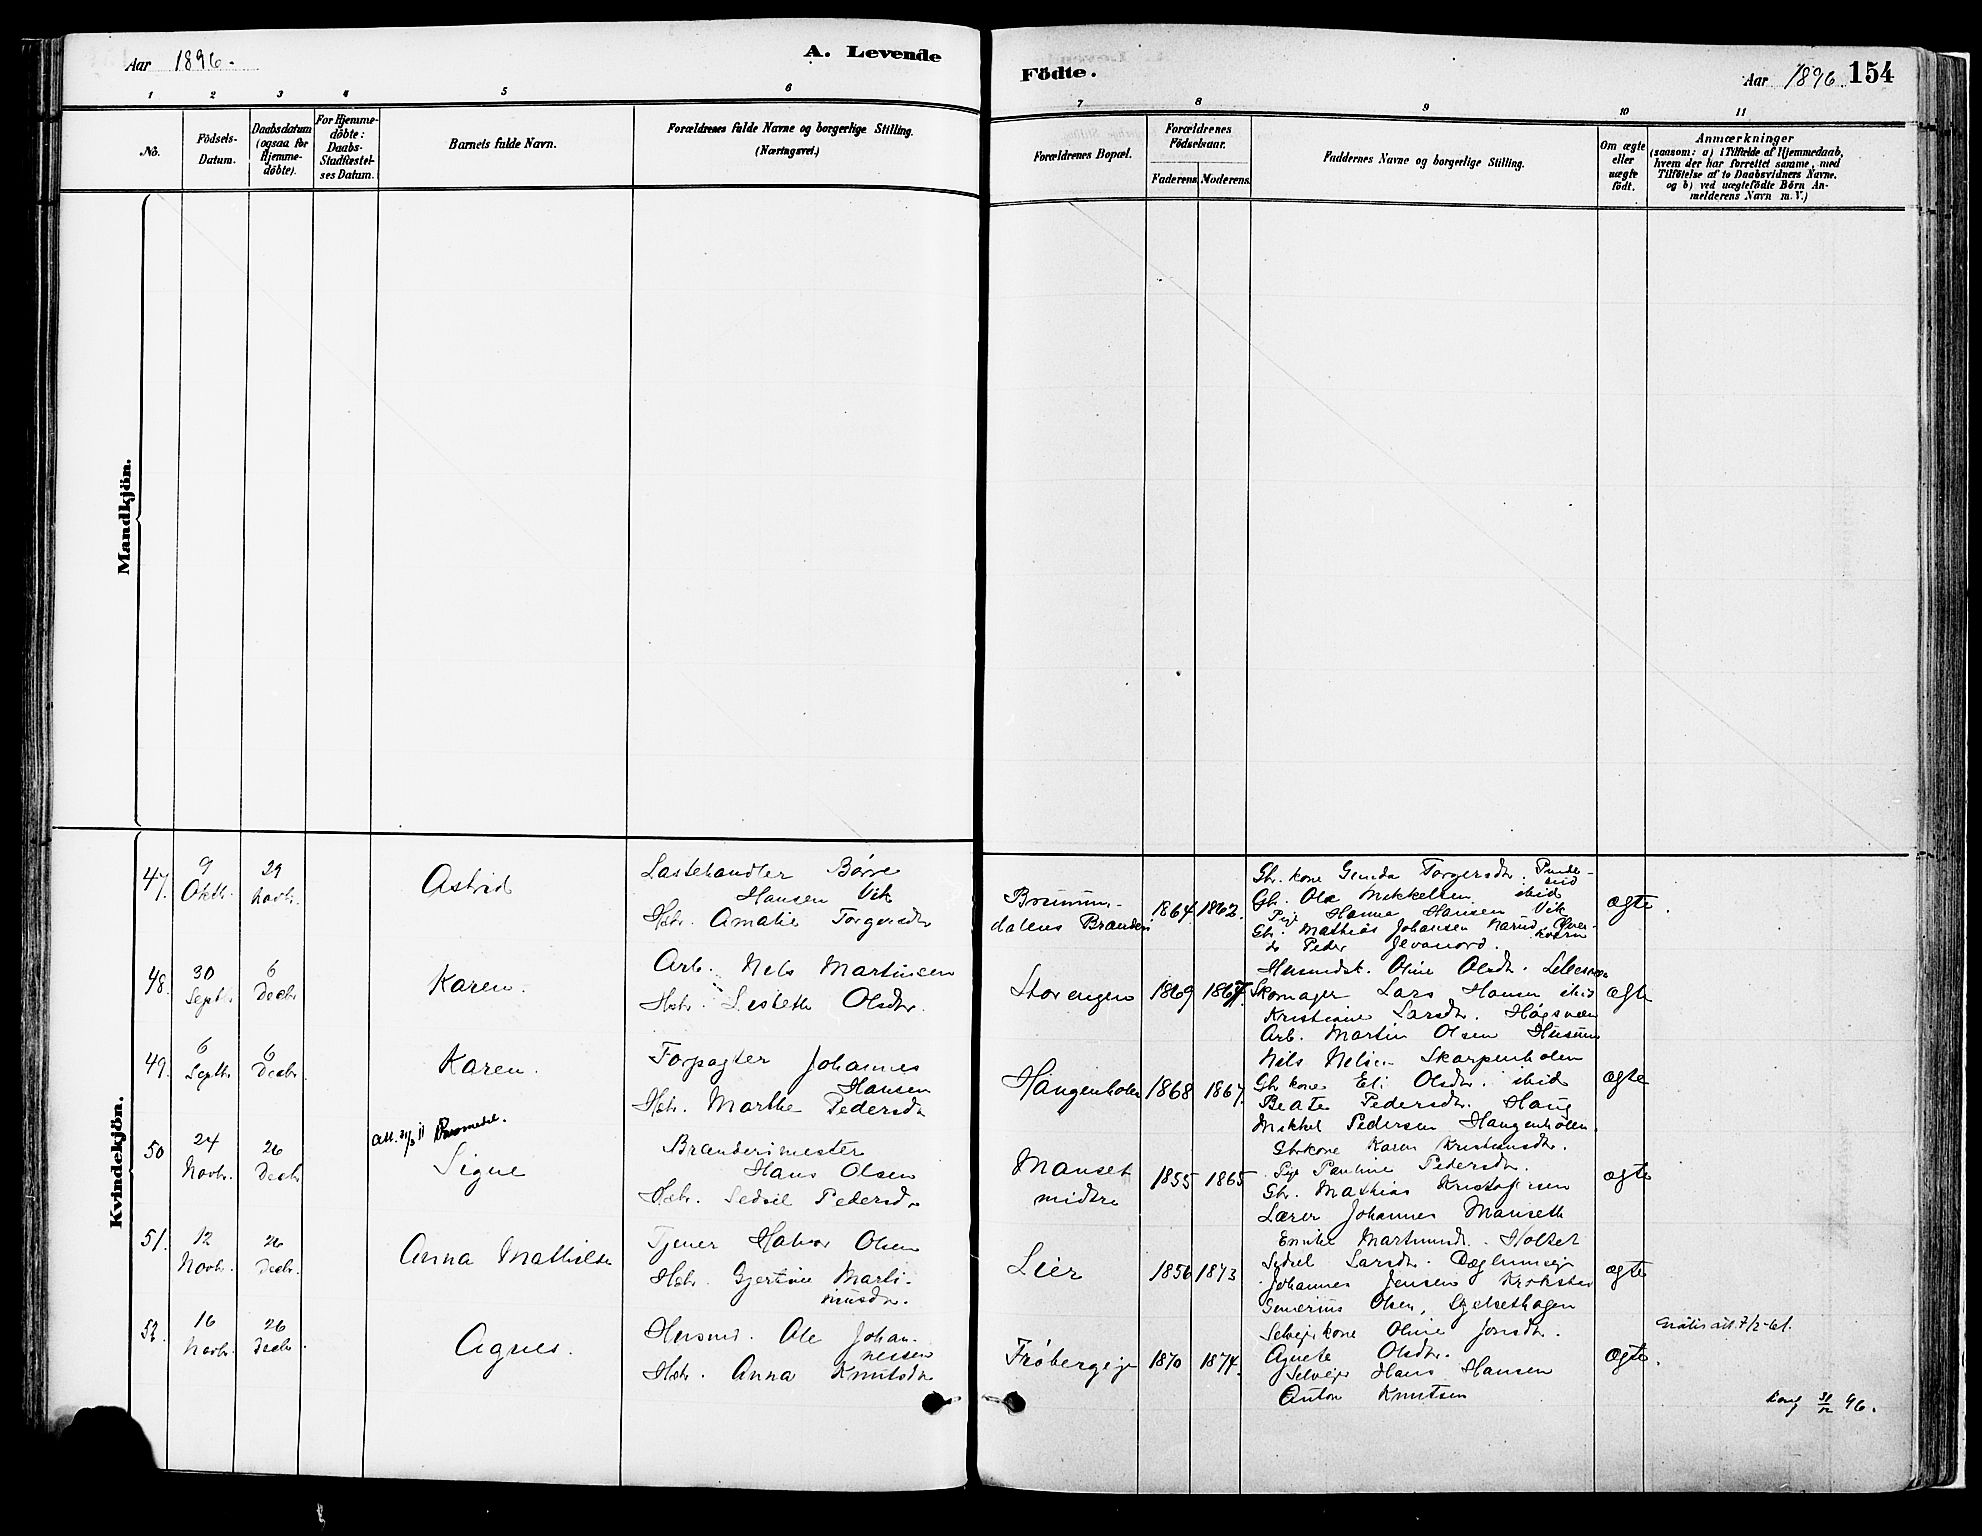 Aar 1896.
A. Levende
Födte.
Aar 1896. 154
1 2 3 4 5 6 7 8 9 10 11
No.
Födsels-
Datum.
Daabsdatum
(ogsaa for
Hjemme-
döbte).
For Hjemme-
döbte:
Daabs-
Stadfæstel-
ses Datum.
Barnets fulde Navn.
Forældrenes fulde Navne og borgerlige Stilling.
(Næringsvei.)
Forældrenes Bopæl.
Forældrenes
Födselsaar.
Faderens. Moderens.
Faddernes Navne og borgerlige Stilling.
Om ægte
eller
uægte
födt.
Anmærkninger
(saasom: a) i Tilfælde af Hjemmedaab,
hvem der har forrettet samme, med
Tilföielse af to Daabsvidners Navne.
og b) ved uægtefödte Börn An-
melderens Navn m. V.)
Mandkjön.
Kvindekjön.
47.
9
Oktb.
29
Novb.
Astrid
Lastehandler Børre
Hansen Vik
Hstr. Amalie Torgersdtr
Brumun-
dalens Brænderi
1864 1862.
Gbr.kone Gunda Torgersdtr.
Gbr. Ole Mikkelsen ibid
Pige Hanna Hansen Vik
Gbr. Mathias Johansen Narud
do Peder Jevanord.
ægte.
48.
30
Septb.
6
Decbr
Karen.
Arb. Nils Martinsen
Hstr. Lisbeth Olsdtr.
Storengen
1869 1867.
Husmdsk. Oline Olsdtr.
Skomager Lars Hansen ibid
Kristiane Larsdtr. Høgsveen
Arb. Martin Olsen Husum
ægte
49.
6
Septb.
6
Decbr.
Karen.
Forpagter Johannes
Hansen
Hstr. Marthe Pedersdtr
Hangenholen
1868 1867.
Nils Nilsen Skarpenholen
Gbr kone Eli Olsdtr. ibid
Beate Pedersdtr. Haug
Mikkel Pedersen Hangenholen.
ægte
50
24
Novbr.
26
Decbr
Signe
Brænderimester
Hans Olsen
Hstr. Sedsel Pedersdtr
Manset
midtre
1855 1865
Gbrkone Karen Kristiansdtr.
Pige Pauline Pedersdtr.
Gbr. Mathias Kristofersen
Lærer Johannes Manseth
ægte
51.
12
Novbr.
26
Decbr.
Anna Mathilde
Tjener Halvor Olsen
Hstr. Gjertine Marti-
niusdtr.
Lier
1856 1873
Holset
Sedsel Larsdtr.
Johannes Jensen Krokstad
Severius Olsen,
ægte
52.
16
Novbr.
26
Decbr
Agnes.
Husmd. Ole Johan-
nessen
Hstr. Anna Knutsdtr
Frøbergeie
1870 1874.
Selveierkone Oline Jonsdtr.
Agnete Olsdtr.
Selveier Hans Hansen
Anton Knutsen
ægte.
Gratis att. 7/2-61.
31/12 96.